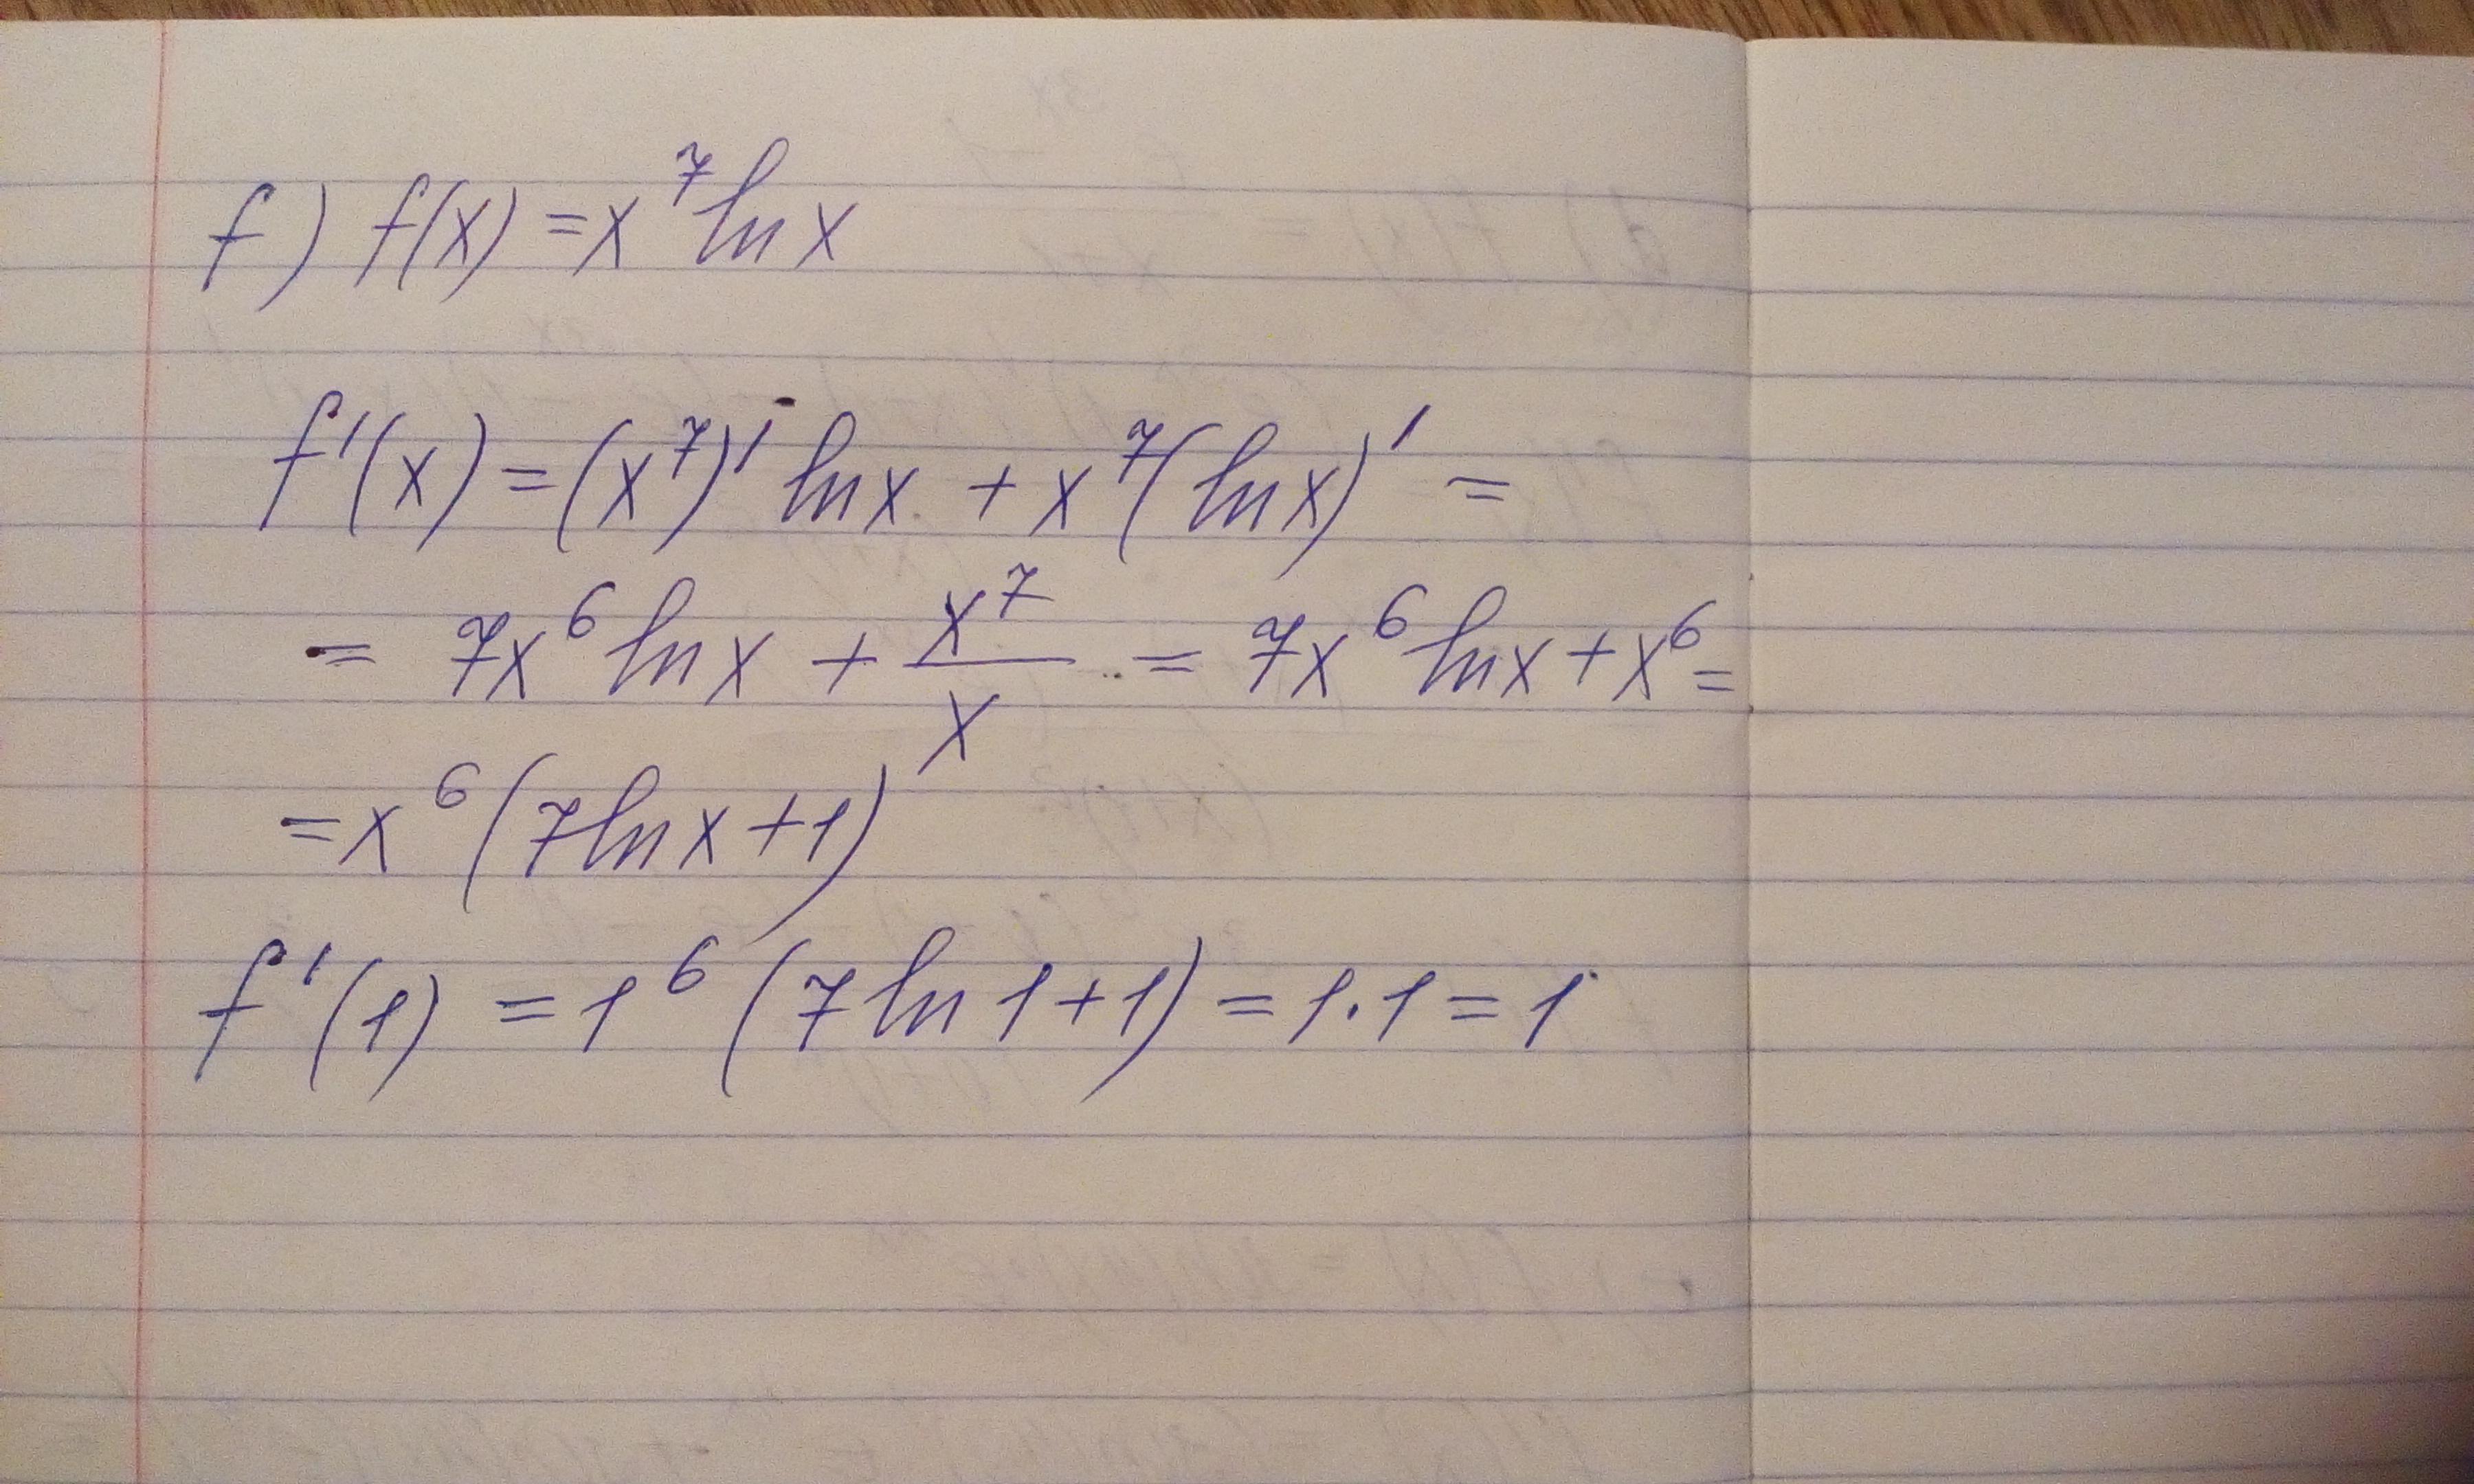 f) f(x) = x⁷ ln x
f'(x) = (x⁷)' ln x + x⁷(ln x)' =
= 7x⁶ ln x + x⁷/x = 7x⁶ ln x + x⁶ =
= x⁶(7 ln x + 1)
f'(1) = 1⁶ (7 ln 1 + 1) = 1 · 1 = 1